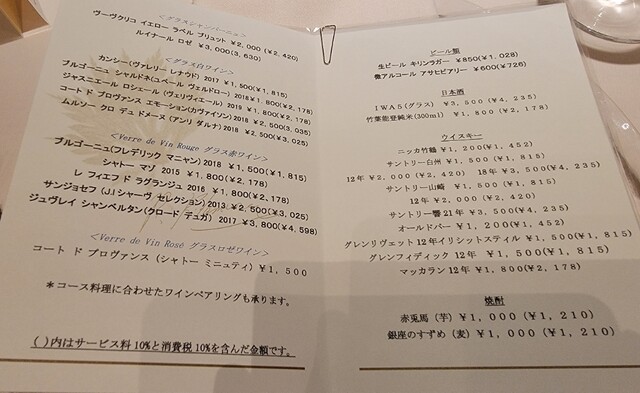 <グラスシャンパーニュ>
ヴーヴクリコ イエロー ラベル ブリュット ¥2,000 (¥2,420)
ルイナール ロゼ ¥3,000(3,630)
<グラス白ワイン>
カンシー(ヴァレリー レナウド) 2017 ¥1,500(¥1,815)
ブルゴーニュ シャルドネ(ユベール ヴェルドロー) 2018 ¥1,800(¥2,178)
ジャスニエール ロシェール (ヴェリヴィエール) 2019 ¥1,800(¥2,178)
コート ド プロヴァンス エモーション(カヴァイソン) 2018 ¥2,500(3,035)
ムルソー クロ デュ ドメーヌ (アンリ ダルナ) 2018 ¥2,500(¥3,025)
<Verre de Vin Rouge グラス赤ワイン>
ブルゴーニュ(フレデリック マニャン) 2018 ¥1,500(¥1,815)
シャトー マゾ 2015 ¥1,800(¥2,178)
レ フィエフ ド ラグランジュ 2016 ¥1,800(¥2,178)
サンジョセフ(J.lシャーヴ セレクション) 2013 ¥2,500(¥3,025)
ジュヴレイ シャンベルタン(クロード デュガ) 2017 ¥3,800(¥4,598)
<Verre de Vin Rosé グラスロゼワイン>
コート ド プロヴァンス (シャトー ミニュティ) ¥1,500
*コース料理に合わせたワインペアリングも承ります。
( )内はサービス料10%と消費税10%を含んだ金額です。
ビール類
生ビール キリンラガー ¥850(¥1,028)
微アルコール アサヒビアリー ¥600(¥726)
日本酒
IWA5(グラス) ¥3,500(¥4,235)
竹葉能登純米(300ml) ¥1,800(¥2,178)
ウイスキー
ニッカ竹鶴 ¥1,200(¥1,452)
サントリー白州 ¥1,500(¥1,815)
12年 ¥2,000(¥2,420) 18年 ¥3,500(¥4,235)
サントリー山崎 ¥1,500(¥1,815)
12年 ¥2,000(¥2,420)
サントリー響21年 ¥3,500(¥4,235)
オールドパー ¥1,200(¥1,452)
グレンリヴェット12年イリシットスティル ¥1,500(¥1,815)
グレンフィディック12年 ¥1,500(¥1,815)
マッカラン12年 ¥1,800(¥2,178)
焼酎
赤兎馬 (芋) ¥1,000(¥1,210)
銀座のすずめ (麦) ¥1,000(¥1,210)